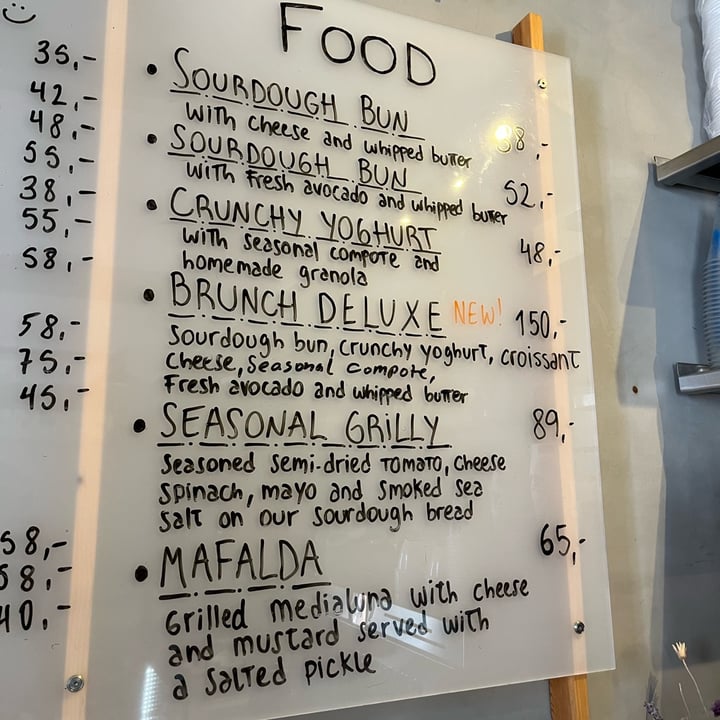 35,-
42,-
48,-
55,-
38,-
55,-
58,-
58,-
75,-
45,-
58,-
58,-
40,-
FOOD
• SOURDOUGH BUN
with cheese and whipped butter 8,-
• SOURDOUGH BUN
with fresh avocado and whipped butter 52,-
• CRUNCHY YOGHURT
with seasonal compote and 48,-
homemade granola
• BRUNCH DELUXE NEW! 150,-
Sourdough bun, crunchy yoghurt, croissant
cheese, seasonal compote,
Fresh avocado and whipped butter
• SEASONAL GRILLY 89,-
Seasoned semi-dried tomato, cheese
spinach, mayo and smoked sea
salt on our sourdough bread
• MAFALDA 65,-
Grilled medialuna with cheese
and mustard served with
a salted pickle